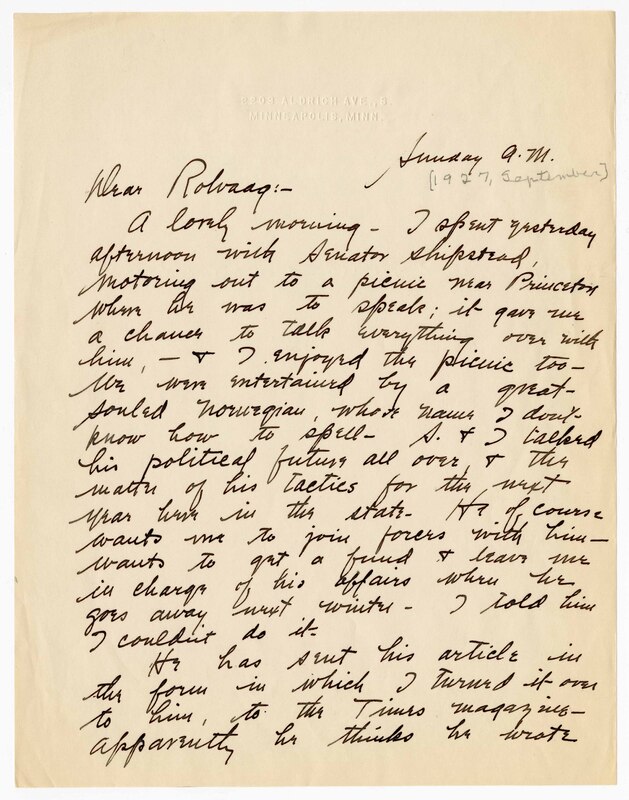 2209 ALDRICH AVE., S.
MINNEAPOLIS, MINN.
Sunday A.M.
[1927, September]
Dear Rolvaag:-
A lovely morning - I spent yesterday
afternoon with Senator Shipstead,
motoring out to a picnic near Princeton
where he was to speak; it gave me
a chance to talk everything over with
him, - & I enjoyed the picnic too -
We were entertained by a great-
souled Norwegian, whose name I don't
know how to spell - S. & I talked
his political future all over, & the
matter of his tactics for the next
year here in the state - He of course
wants me to join forces with him -
wants to get a fund & leave me
in charge of his affairs when he
goes away next winter - I told him
I couldn't do it -
He has sent his article in
the form in which I turned it over
to him, to the Times magazine -
apparently he thinks he wrote